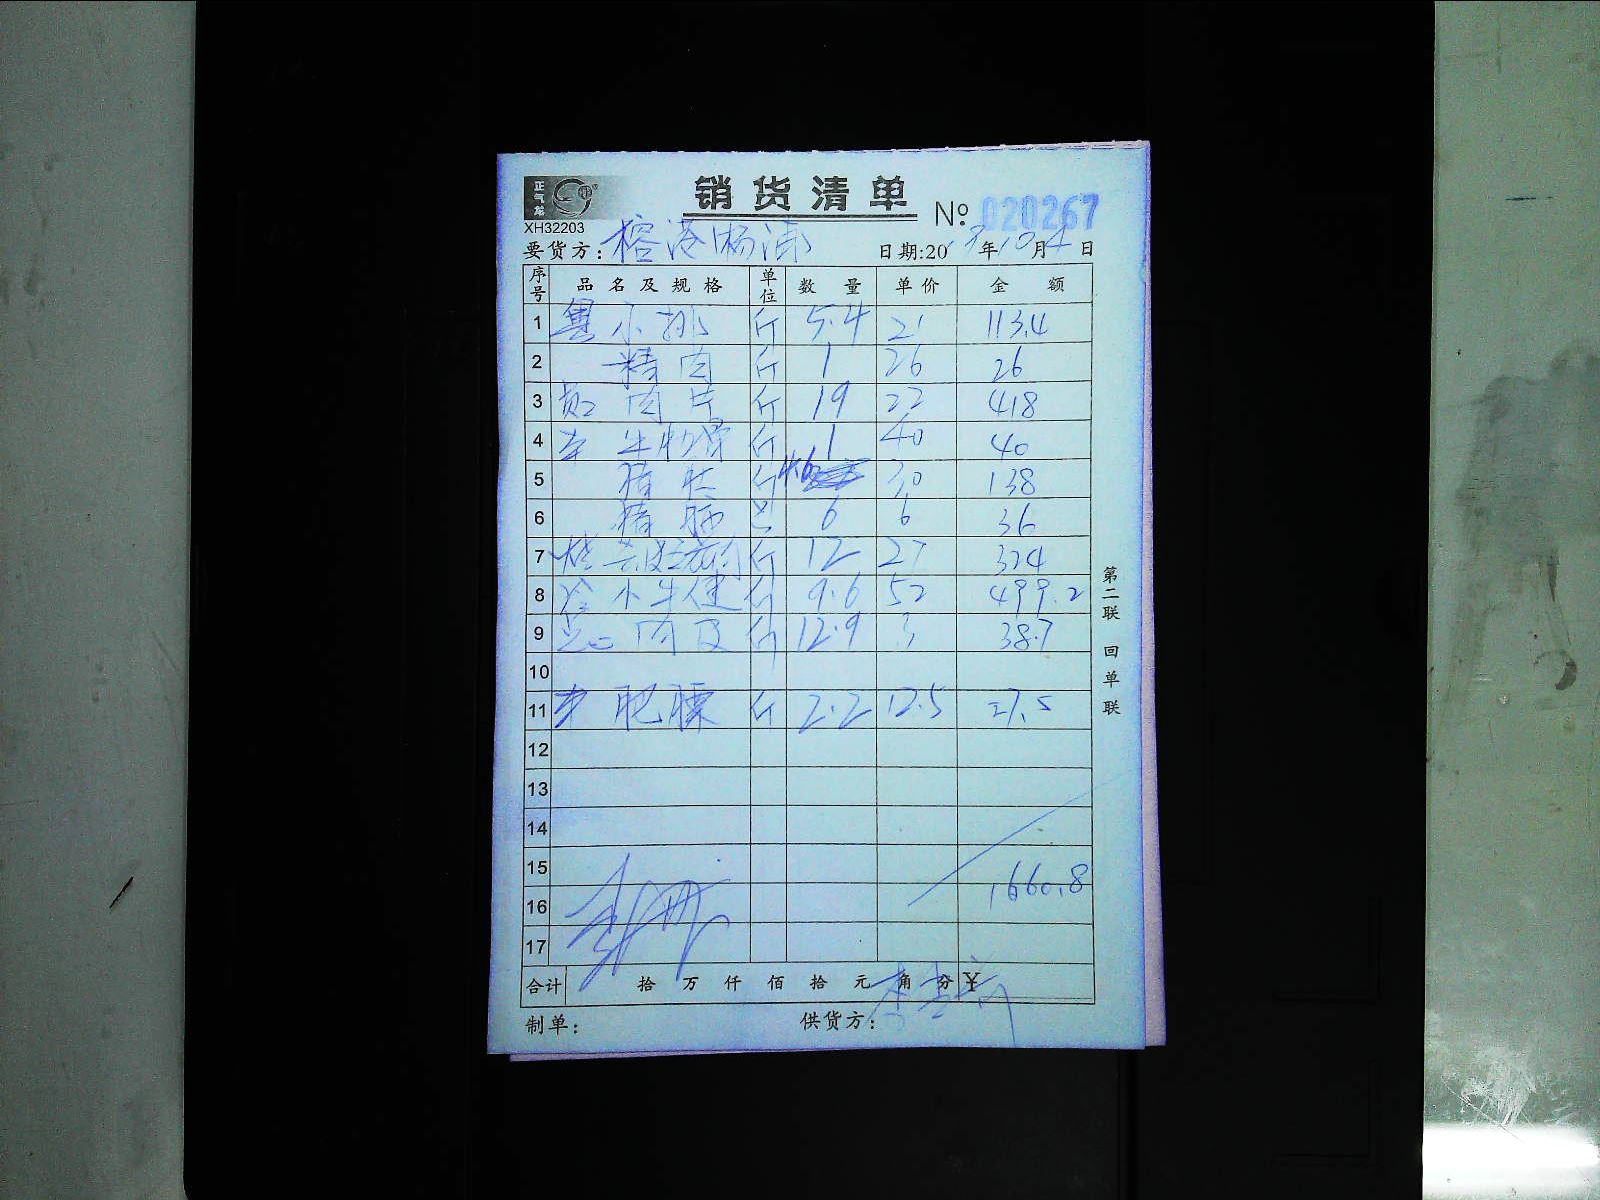 正气龙
销货清单
№ 020267
XH32203
要货方:
日期:20 年10月4日
序号 品名及规格 单位 数量 单价 金额
1 小排 斤 5.4 21 113.4
2 精肉 斤 1 26 26
3 肉片 斤 19 22 418
4 斤 1 40 40
5 斤 4.6 30 138
6 6 6 36
7 斤 12 27 324
8 小牛健 斤 9.6 52 499.2
9 肉皮 斤 12.9 3 38.7
10
11 肥膘 斤 2.2 12.5 27.5
12
13
14
15
1660.8
16
17
合计 拾万仟佰拾元角分¥
制单: 供货方:
第二联 回单联